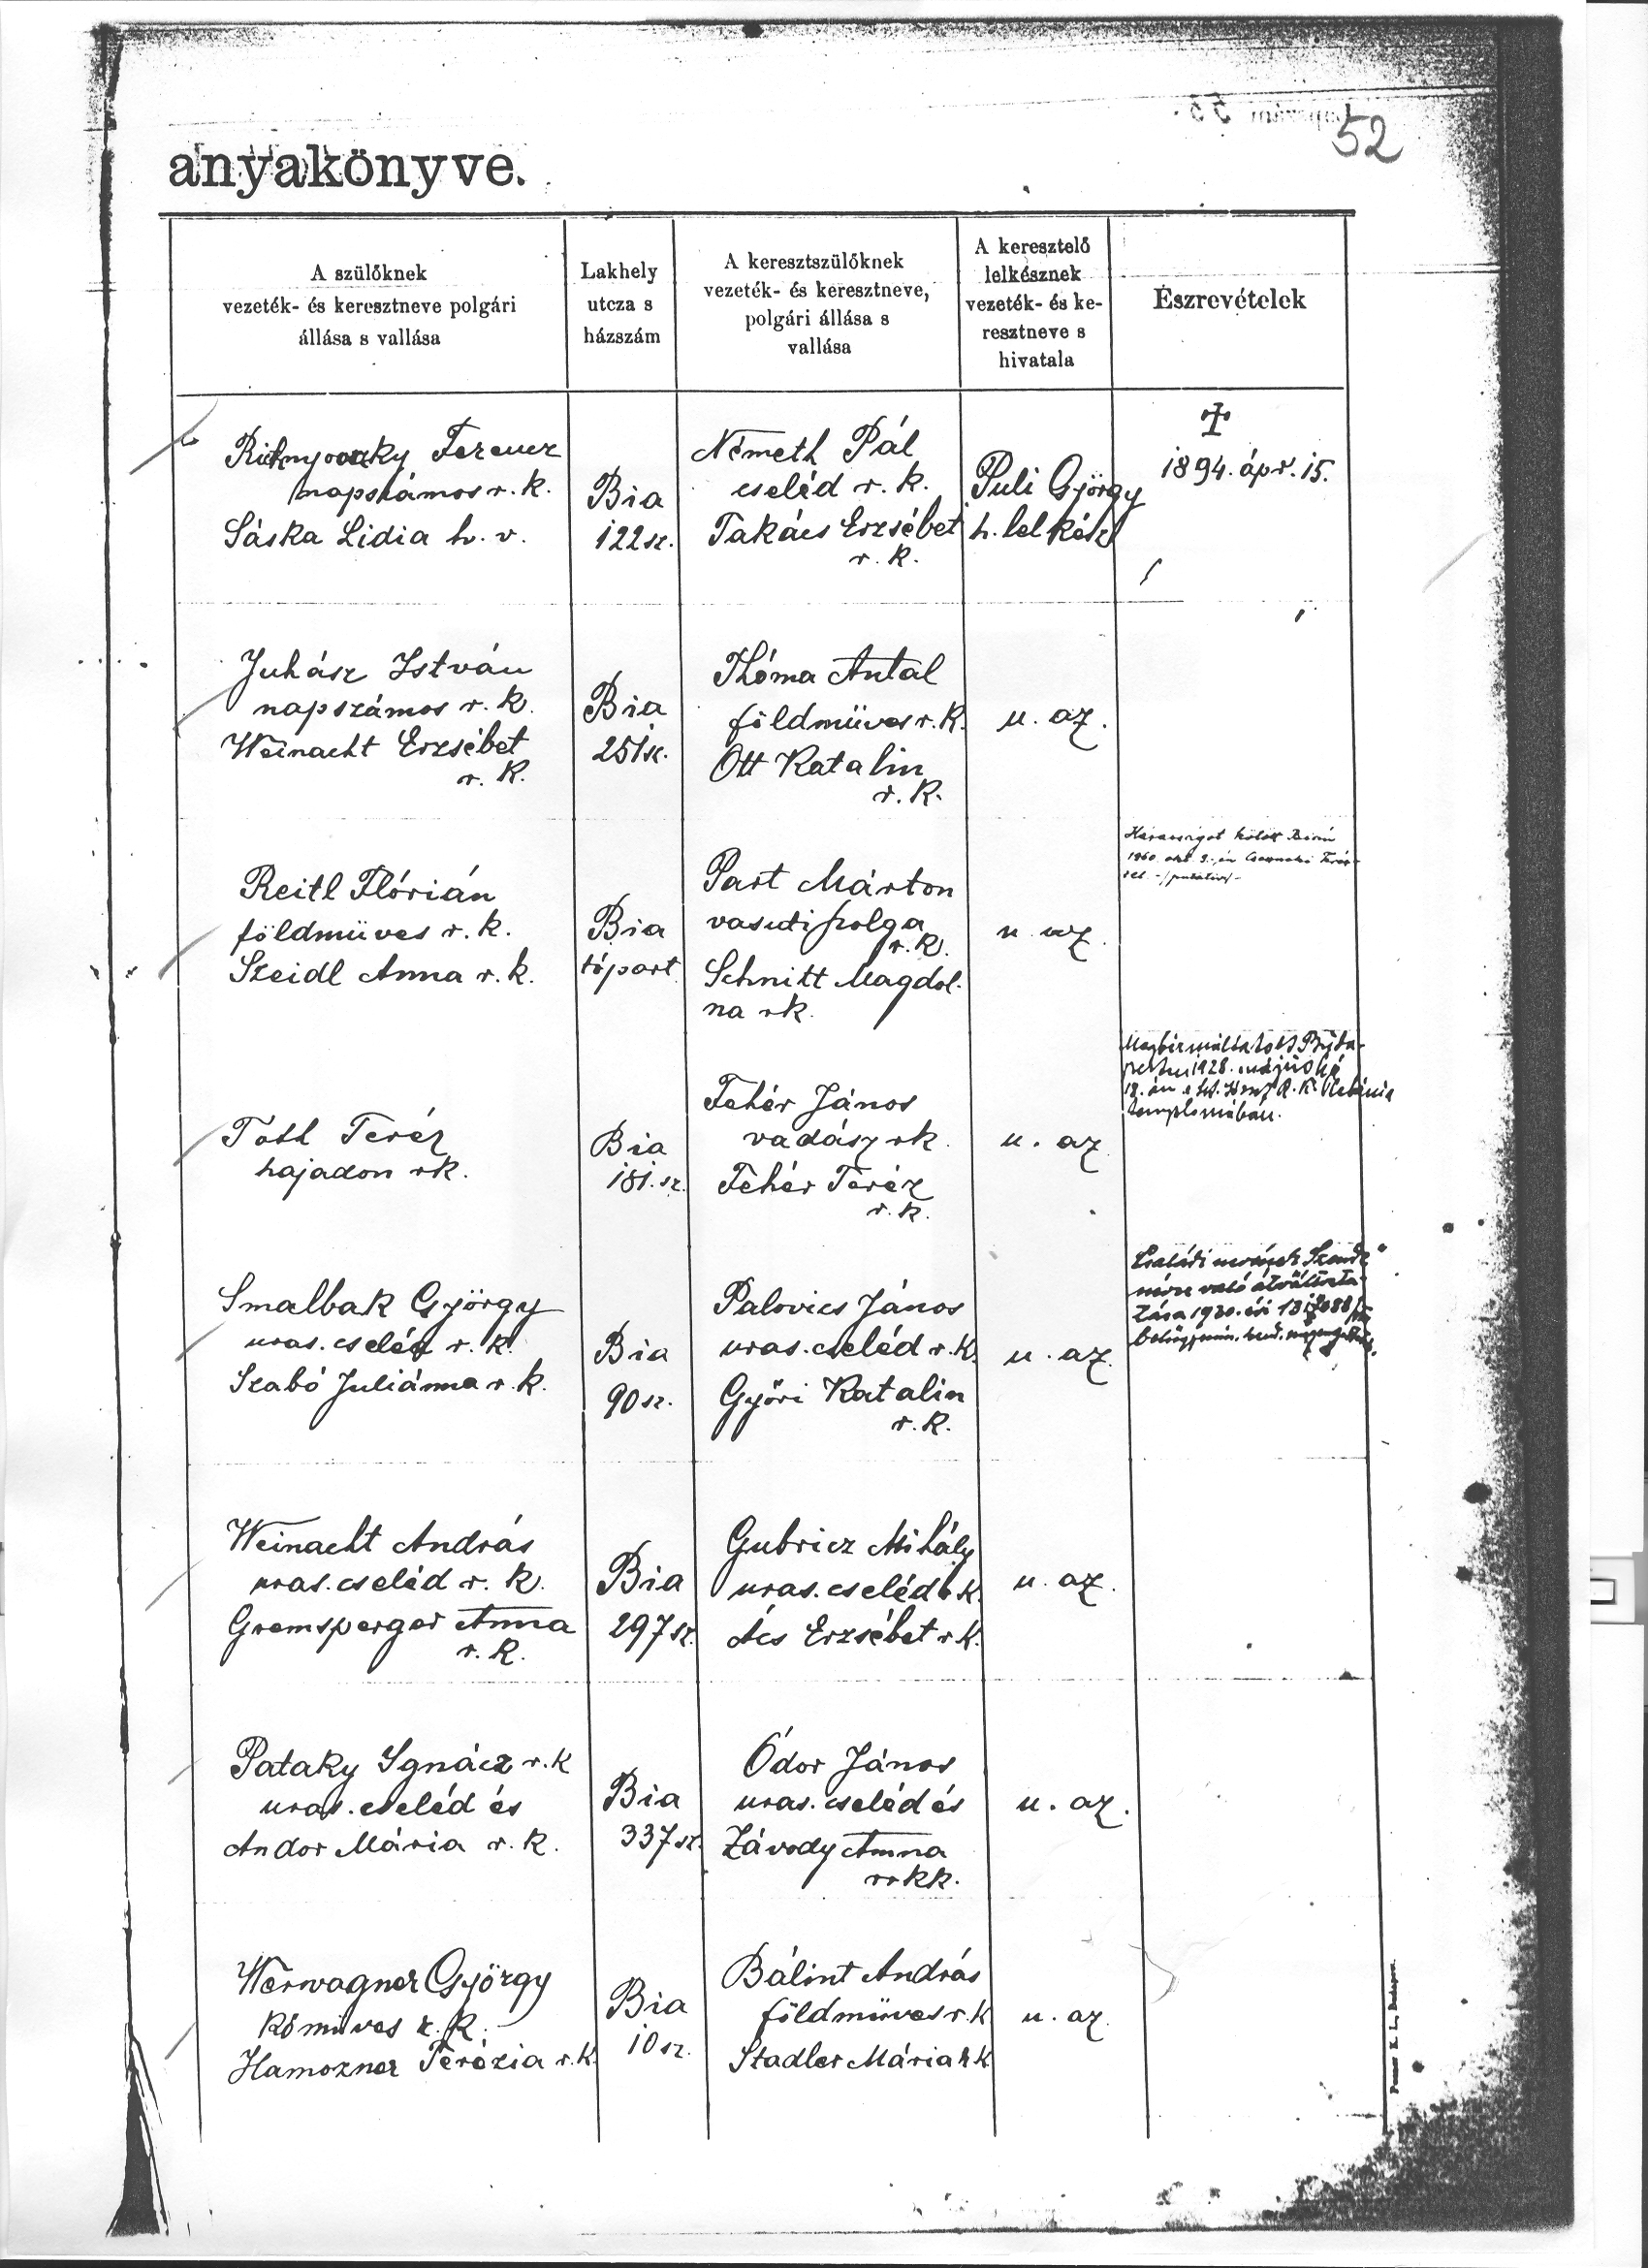 52
anyakönyve.
A szülőknek
vezeték- és keresztneve polgári
állása s vallása
Lakhely
utcza s
házszám
A keresztszülőknek
vezeték- és keresztneve,
polgári állása s
vallása
A keresztelő
lelkésznek
vezeték- és ke-
resztneve s
hivatala
Észrevételek
Ferencz
napszámos r. k.
Sáska Lidia h. v.
Bia
122 sz.
Németh Pál
cseléd r. k.
Takács Erzsébet
r. k.
Puli György
h. lelkész
1894. ápr. 15.
Juhász István
napszámos r. k.
Weinacht Erzsébet
r. k.
Bia
251 sz.
Thóma Antal
földmüves r. k.
Ott Katalin
r. k.
u. az.
Reitl Flórián
földmüves r. k.
Szeidl Anna r. k.
Bia
tópart
Part Márton
vasuti szolga
r. k.
Schnitt Magdol-
na rk.
u. az.
Tóth Teréz
hajadon rk.
Bia
181. sz.
Fehér János
vadász rk.
Fehér Teréz
r. k.
u. az.
Megbérmáltatott Buda-
pesten 1928. május hó
templomában.
Smalbak György
uras. cseléd r. k.
Szabó Juliánna r. k.
Bia
90 sz.
Palovics János
uras. cseléd r. k.
Győri Katalin
r. k.
u. az.
Családi nevének
névre való átváltozta-
tása 1930. évi
Weinacht András
uras. cseléd r. k.
Gremsperger Anna
r. k.
Bia
297 sz.
Gubricz Mihály
uras. cseléd r. k.
Ács Erzsébet r k.
u. az.
Pataky Ignácz r. k
uras. cseléd és
Andor Mária r. k.
Bia
337 sz.
Ódor János
uras. cseléd és
Závody Anna
rr kk.
u. az.
Werwagner György
Kőmives r. k.
Hamozner Terézia r. k.
Bia
10 sz.
Bálint András
földmüves r. k
Stadler Mária r k
u. az.